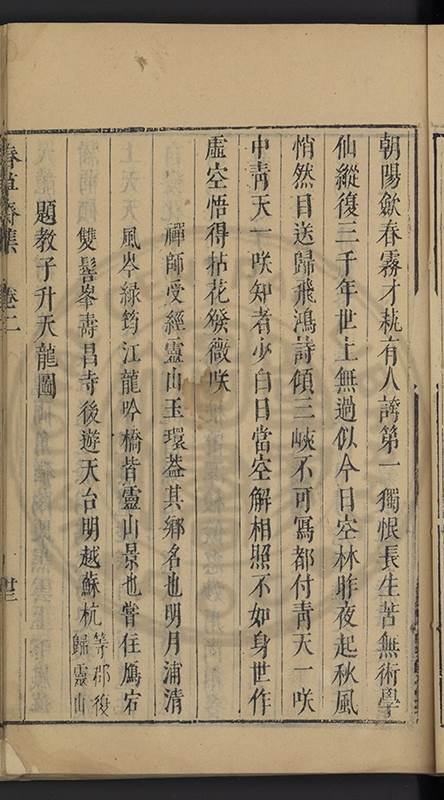 朝陽歛春霧才執有人誇第一獨恨長生苦無術學
仙縱復三千年世上無過似今日空林昨夜起秋風
悄然目送歸飛鴻詩傾三峽不可寫都付青天一咲
中青天一咲知者少白日當空解相照不如身世作
虛空悟得拈花發微咲
禪師受經靈山玉環葢其鄉名也明月浦清
風岑綠筠江龍吟橋皆靈山景也嘗住鴈宕
雙髻峯壽昌寺後遊天台明越蘇杭等郡復歸靈山
題教子升天龍圖
春草齋集 卷二 廿三